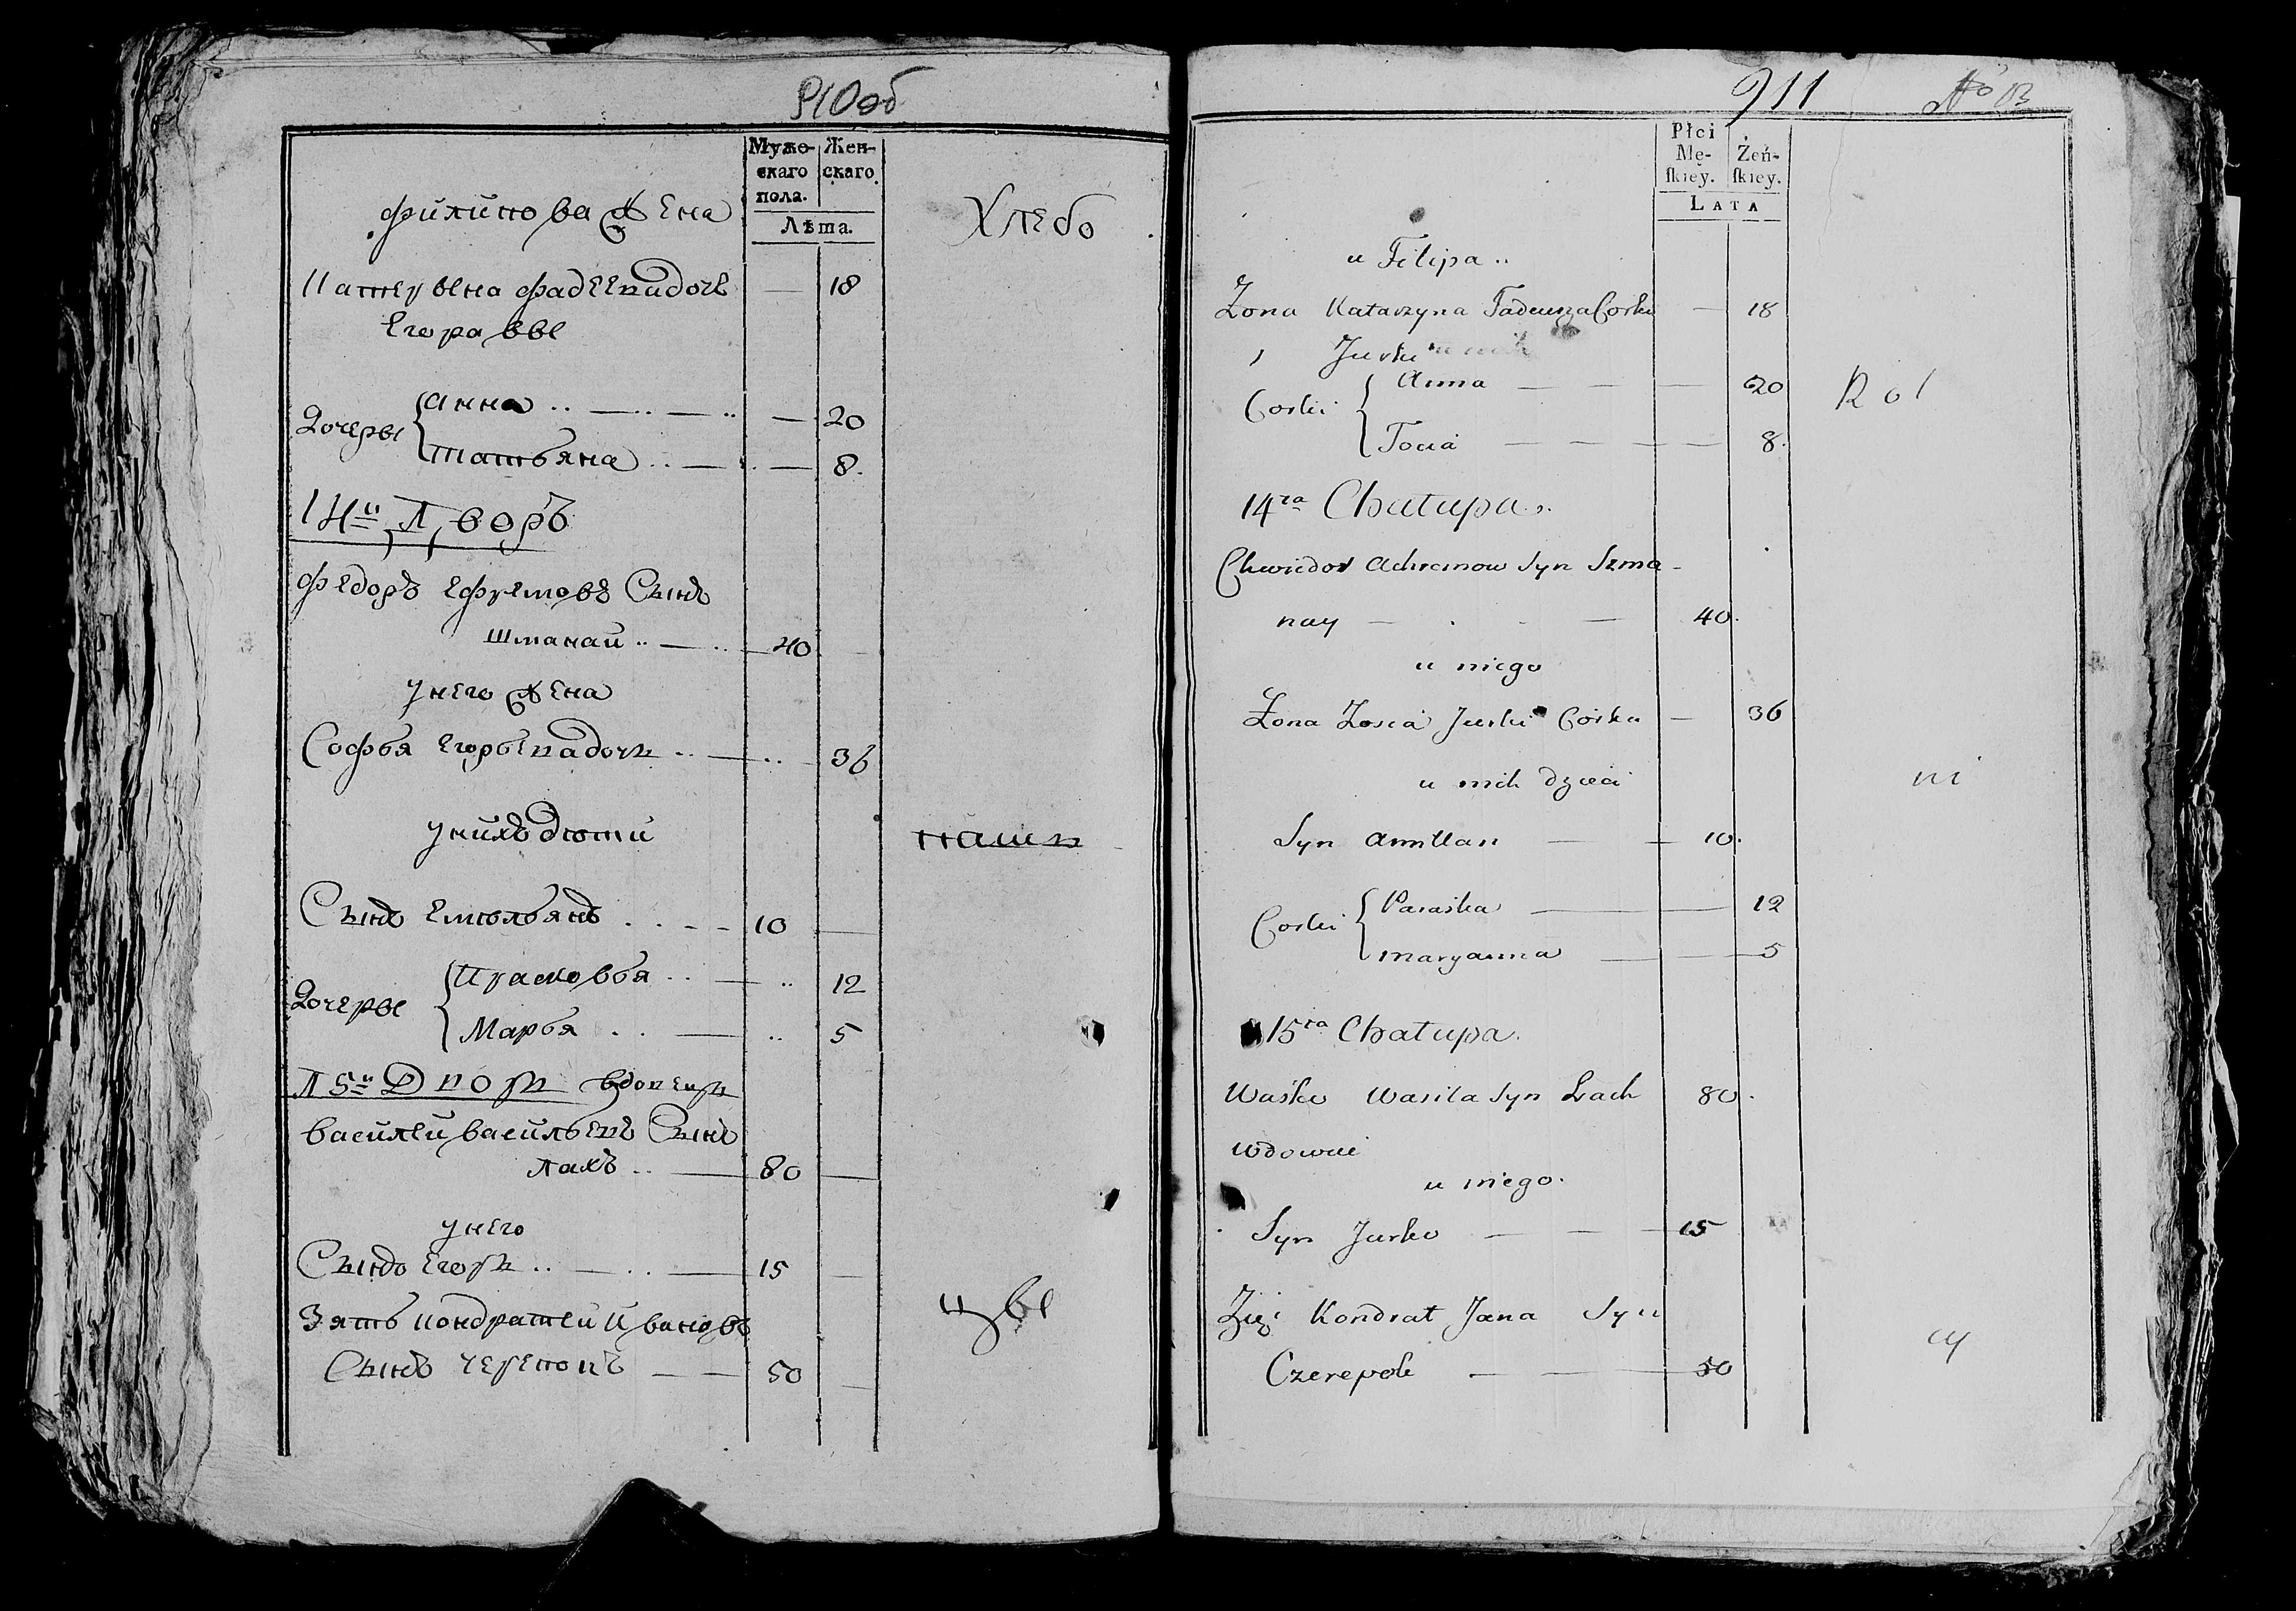 910об
Муже-
скаго
пола.
Жен-
скаго.
Лѣта.
филипова жена
Катерына фадеева дочь 18
Егоравы
Хлебо
Дочеры
Анна 20
Татьяна 8.
14й Дворъ
Федоръ Ефремовъ Сынъ
Шманай 40
у него жена
Софья Егорьева дочь 36
у нихъ дети
паш
Сынъ Емельянъ 10
Дочеры
Прасковья 12
Марья 5
15й Дворъ вдовецъ
Василей Васильевъ Сынъ
Лахъ 80
у него
Сынъ Егоръ 15
цы
Зять Кондратей Ивановъ
Сынъ Черепокъ 50
911
No 13
Płci
Mę-
ſkiey.
Żeń-
ſkiey.
LATA
u Filipa
Żona Katarzyna Tadeusza Corka 18
Jurki
Corki
Anna 20
Tocia 8.
Rol
14ta Chałupa
Chwiedor Achremow Syn Szma-
nay 40.
u niego
Żona Zosia Jurki Córka 36
u nich dzieci
ni
Syn Amillan 10.
Corki
Paraska 12
Maryanna 5
15ta Chałupa.
Waśko Wasila Syn Lach 80.
Wdowiec
u niego.
Syn Jurko 15
Zięć Kondrat Jana Syn
cy
Czerepok 50